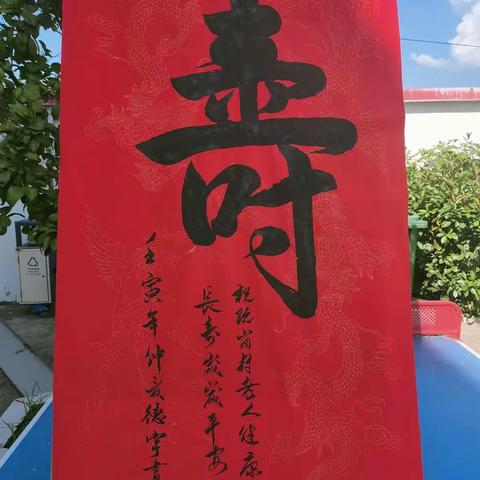 壽
祝阮岗村老人健康
長寿歲歲平安
壬寅年仲亥德宇書